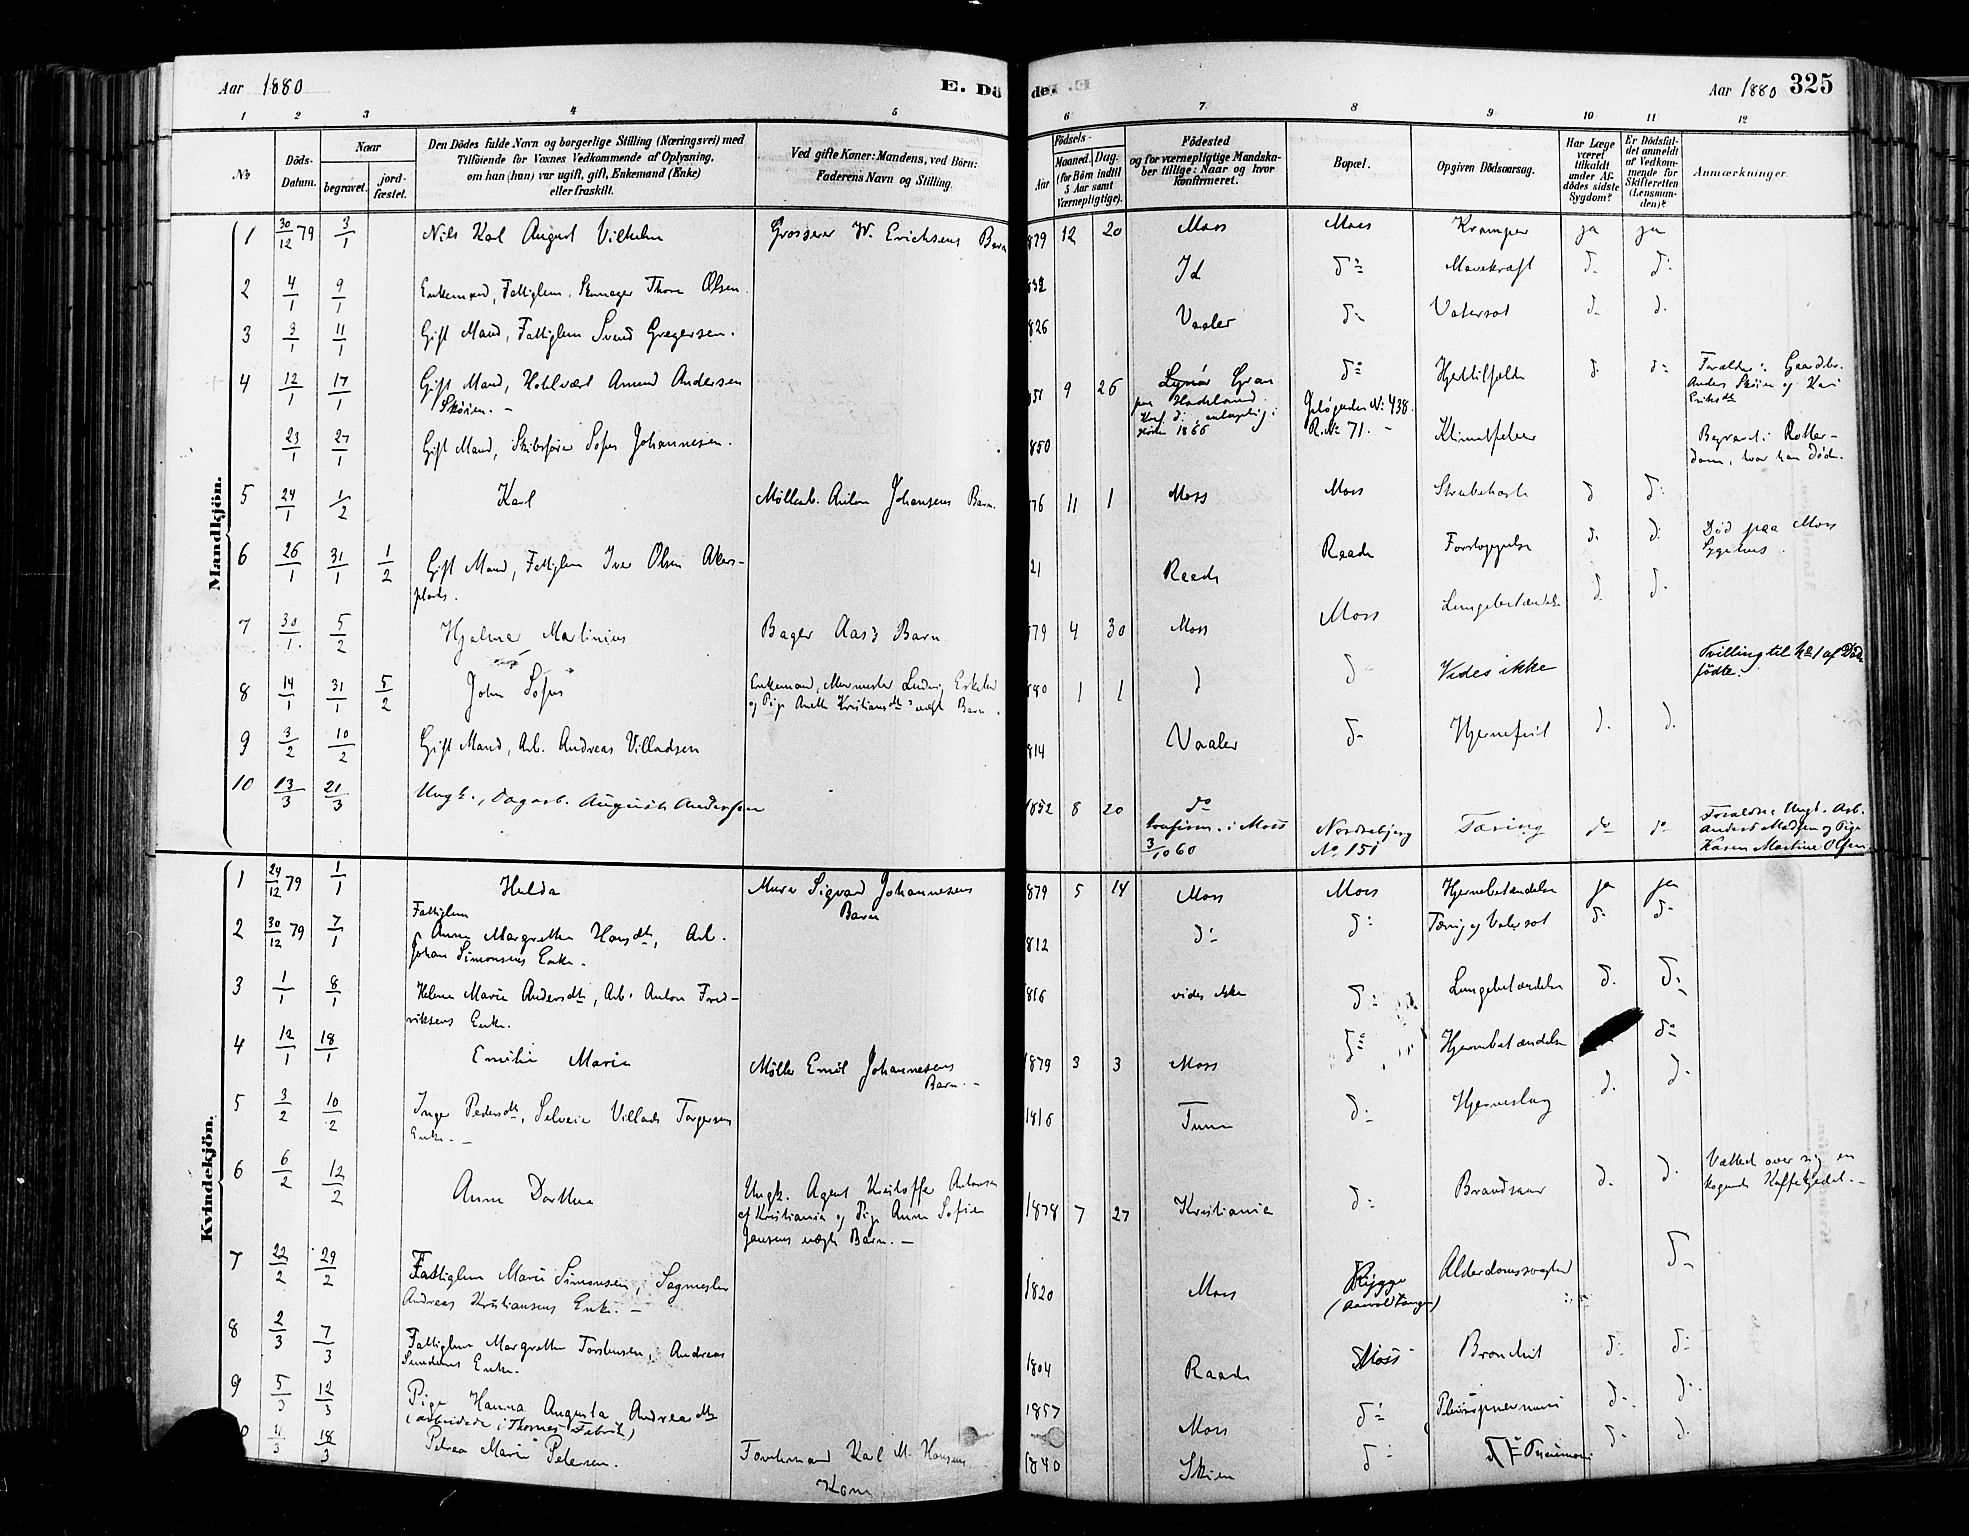 Aar 1880
E. Döde.
Aar 1880 325
1 2 3 4 5 6 7 8 9 10 11 12
No
Döds-Datum.
Naar
begravet.
jordfæstet.
Den Dödes fulde Navn og borgerlige Stilling (Næringsvei) med
Tilföiende for Voxnes Vedkommende af Oplysning,
om han (hun) var ugift, gift, Enkemand (Enke)
eller fraskilt.
Ved gifte Koner: Mandens, ved Börn:
Faderens Navn og Stilling.
Födsels-
Aar
Maaned.
Dag.
(for Börn indtil
5 Aar samt
Værnepligtige).
Födested
og for værnepligtige Mandska-
ber tillige: Naar og hvor
Konfirmeret.
Bopæl.
Opgiven Dödsaarsag.
Har Læge
været
tilkaldt
under Af-
dödes sidste
Sygdom?
Er Dödsfal-
det anmeldt
af Vedkom-
mende for
Skifteretten
(Lensman-
den)?
Anmærkninger.
Mandkjön.
1 30/12 79 3/1 Nils Karl August Vilhelm Grosserer W. Erichsens Barn 879 12 20 Moss Moss Kramper ja ja
2 4/1 9/1 Enkemand, Fattiglem, Skomager Thore Olsen 832 Id do Mavekræft d. d.
3 3/1 11/1 Gift Mand, Fattiglem Svend Gregersen. 826 Vaaler do Vatersot d. d.
4 12/1 17/1 Gift Mand, Hotelvært Amund Andersen
Skøien. 851 9 26 Gran
paa Hadeland.
1866
No 438.
R.No 71. Hjertetilfælde d. do Forældre: Gaardbr.
Anders Skøien og Kari
Eriksdt
23/1 27/1 Gift Mand, Skibsfører Sofus Johannesen. 850 Klimatfeber Begravet i Rotter-
dam, hvor han døde.
5 24/1 1/2 Karl Møllerb. Anton Johansens Barn. 876 11 1 Moss Moss Strubehoste d d.
6 26/1 31/1 1/2 Gift Mand, Fattiglem Iver Olsen Akers-
plads. 21 Raade Raade Forstoppelse d. d. Død paa Moss
Sygehus.
7 30/1 5/2 Hjalmar Martinius Bager Aas's Barn 879 4 30 Moss Moss Lungebetændelse d. d.
8 14/1 31/1 5/2 John Sofus Enkemand, Murmester Ludvig
og Pige Anette Kristiansdts uægte Barn. 880 1 1 d do Vides ikke Tvilling til No 1 af Død-
fødte.
9 3/2 10/2 Gift Mand, Arb. Andreas Villadsen 814 Vaaler do Hjernefeil d. d.
10 13/3 21/3 Ungk., Dagarb. August Andersen 1852 8 20 do
konfirm. i Moss
3/10 60
Nordrebjerg
No 151 Tæring do do Forældre: Ungk. Arb.
Anders Madsen og Pige
Karen Martine Olsen
Kvindekjön.
1 24/12 79 1/1 Hulda Murer Sigvard Johannesens
Barn 879 5 14 Moss Moss Hjernebetændelse ja ja
2 30/12 79 7/1 Fattiglem
Anne Margrethe Hansdt, Arb.
Johan Simonsens Enke. 812 do do Tæring og Vatersot do do
3 1/1 8/1 Helene Marie Andersdt, Arb. Anton Fred-
riksens Enke. 816 vides ikke do Lungebetændelse d. d.
4 12/1 18/1 Emilie Marie Møller Emil Johannesens
Barn. 1879 3 3 Moss do Hjernebetændelse do
5 3/2 10/2 Inger Pedersdt, Selveier Villads Torgersens
Enke. 1816 Tune do Hjerneslag d. d.
6 6/2 12/2 Anne Dorthea Ungk. Agent Kristoffer Antonsen
af Kristiania og Pige Anne Sofie
Jensens uægte Barn. 1878 7 27 Kristiania do Brandsaar d. d. Væltede over sig en
kogende Kaffekjedel.
7 22/2 29/2 Fattiglem Marie Simonsen, Sagmester
Andreas Kristiansens Enke. 1820 Moss Rygge
Alderdomssvaghed do
8 2/3 7/3 Fattiglem Margrethe Torstensen, Andreas
Enke. 1804 Raade Moss Bronchit do do
9 5/3 12/3 Pige Hanna Augusta Andreasdt
(arbeidede i Thornes Fabrik) 1857 Moss do Pleuropneumoni d. d.
4/3 18/3 Petrea Marie Petersen. Karl M. Hansens
Kone 1840 Skien do Pneumoni d. d.